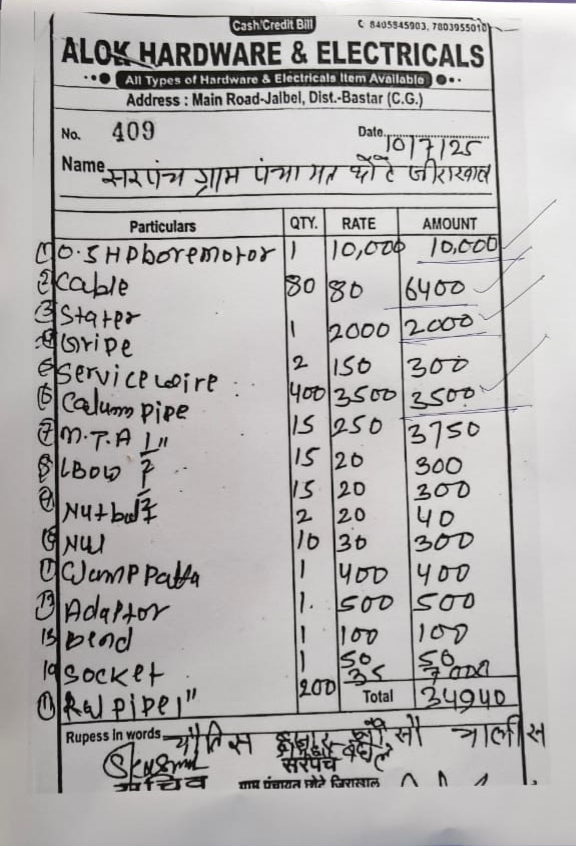 Cash/Credit Bill
✆ 8405845903, 7803955010
ALOK HARDWARE & ELECTRICALS
All Types of Hardware & Electricals Item Available
Address : Main Road-Jaibel, Dist.-Bastar (C.G.)
No. 409
Date 10/7/25
Name सरपंच ग्राम पंचायत छोटे जीराखाल
Particulars QTY. RATE AMOUNT
(1) 0.5 HP boremotor 1 10,000 10,000
(2) Cable 80 80 6400
(3) Stater 1 2000 2000
Gripe 2 150 300
Service wire 400 3500 3500
(6) Calum pipe 15 250 3750
(7) M.T.A 1" 15 20 300
(8) LBow 15 20 300
Nutbolt 2 20 40
10 30 300
Clamp Patta 1 400 400
Adaptor 1 500 500
Bend 1 100 100
14 Socket 1 50 50
pipe 1" 200 35 7000
Total 34940
Rupess in words चौतिस हजार नौ सौ चालीस
सरपंच
सचिव
ग्राम पंचायत छोटे जिराखाल